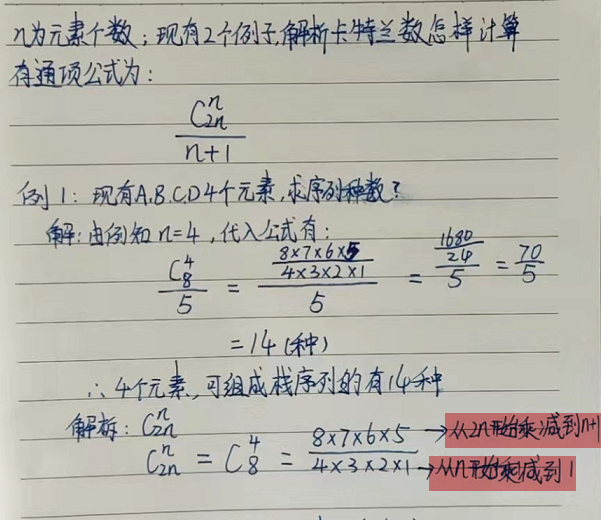 n为元素个数；现有2个例子，解析卡特兰数怎样计算
有通项公式为：
C₂ₙⁿ / (n+1)
例1：现有A.B.C.D 4个元素，求序列种数？
解：由例知 n=4，代入公式有：
C₈⁴ / 5 = (8×7×6×5 / 4×3×2×1) / 5 = (1680 / 24) / 5 = 70 / 5
=14（种）
∴ 4个元素，可组成栈序列的有14种
解析：C₂ₙⁿ
C₂ₙⁿ = C₈⁴ = 8×7×6×5 / 4×3×2×1
→从2n开始乘，减到n+1
→从n开始乘，减到1